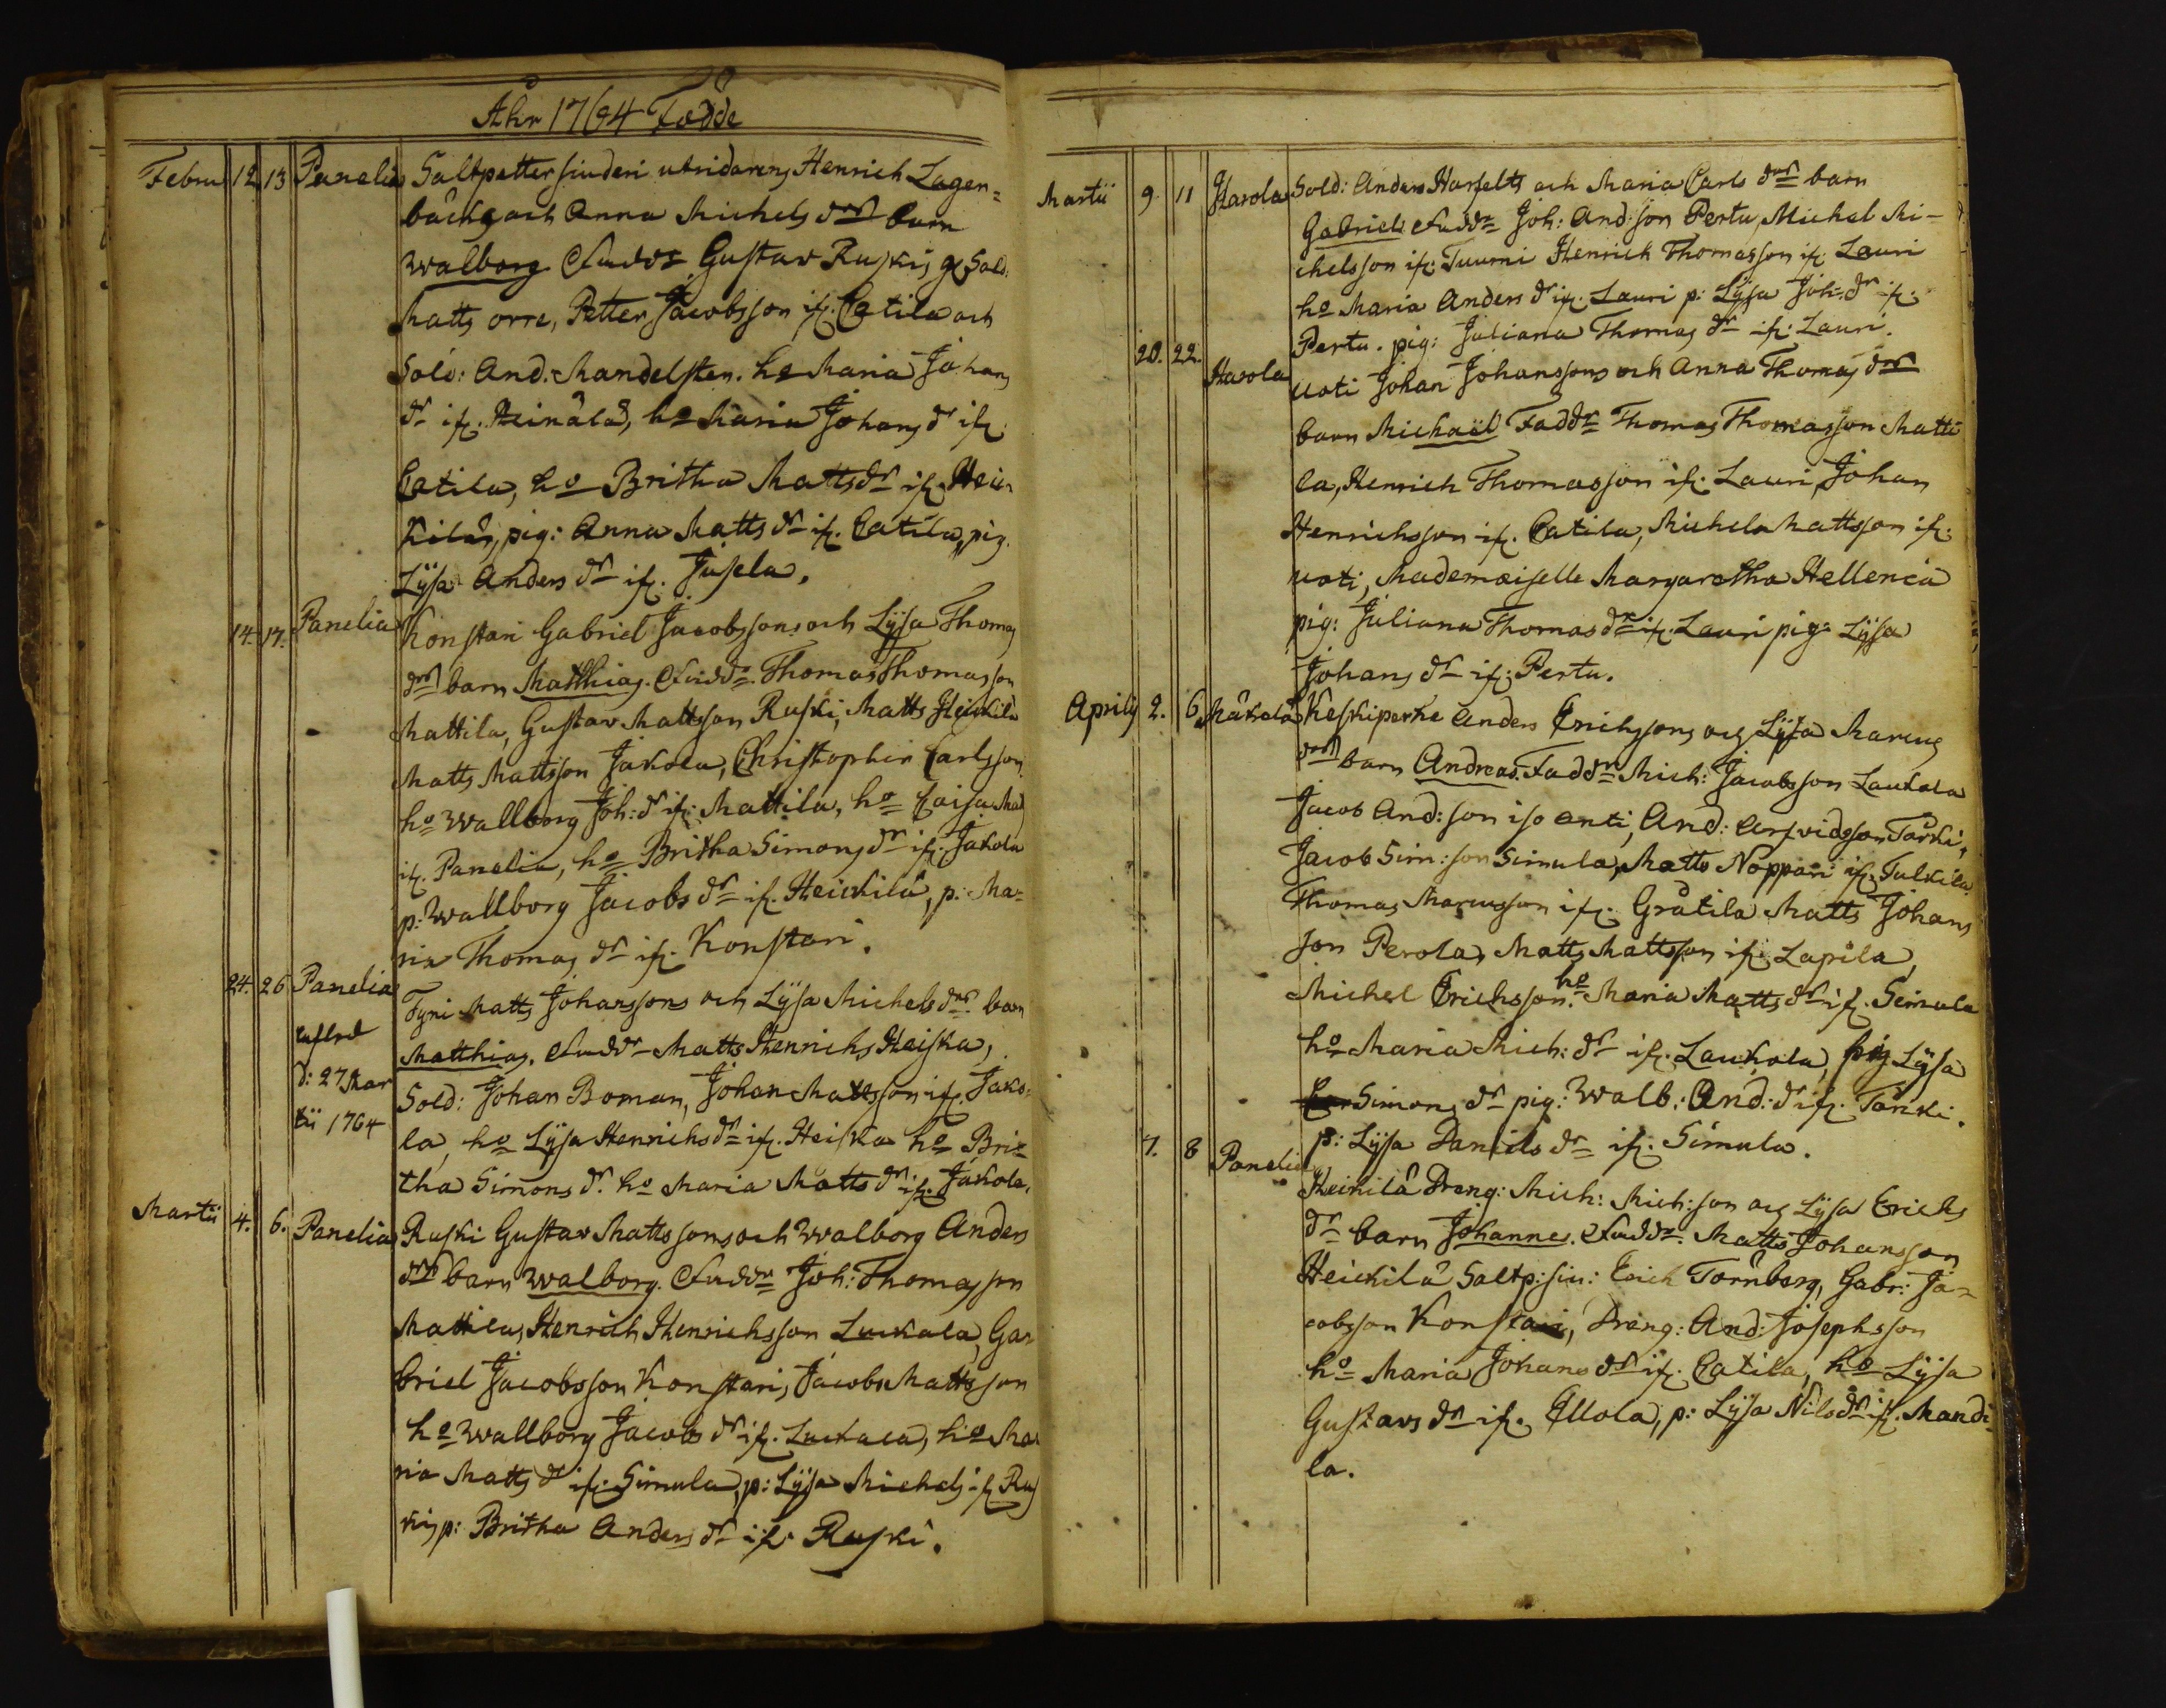 Åhr 1764 Födde
Febru 12 13 Panelia Saltpetter siuderi utridarens Henrich Lager=
bäcks och Anna Michels dors barn
Walborg Faddr Gustav Ruski, g Sold:
Matts orre, Petter Jacobsson if. Catila och
Sold: And. Mandelsten. ho Maria Johans
dr if. Heinälä, ho Maria Johans dr if.
Catila, ho Britha Matts dr if. Hei=
kilä, pig: Anna Matts dr if. Catila, pig.
Lÿsa Anders dr if. Jusela.
14. 17. Panelia Konstari Gabriel Jacobssons och Lÿsa Thomas
dors barn Matthias. Faddr. Thomas Thomasson
Mattila, Gustav Mattsson Ruski, Matts Heickilä
Matts Mattsson Jakola, Christopher Carlsson
ho Wallborg Joh: dr if: Mattila, ho Caisa Mad
if. Panelia, ho Britha Simons dr if. Jakola
p: Wallborg Jacobs dr if. Heickilä, p: Ma=
ria Thomas dr if. Konstari.
24. 26 Panelia Tyni Matts Johanssons och Lÿsa Michels dors barn
Matthias. Faddr Matts Henrichs Heiska,
d: 27 Mar Sold: Johan Boman, Johan Mattsson if. Jako=
tii 1764 la, ho Lÿsa Henrichs dr if. Heiska ho Bri=
tha Simons dr. ho Maria Matts dr if. Jakola.
Martii 4. 6. Panelia Ruski Gustav Mattssons och Walborg Anders
dors barn Walborg. Faddr Joh: Thomasson
Mattila, Henrich Henrichsson Luckala, Ga=
briel Jacobsson Konstari, Jacob Mattsson
ho Wallborg Jacobs dr if. Luckala, ho Ma=
ria Matts dr if. Simula, p: Lÿsa Michels if Rus
ki, p: Britha Anders dr if. Ruski.
Martii 9. 11 Harola Sold: Anders Harfelts och Maria Carls dors barn
Gabriel Faddr Joh: And:son Pertu, Michel Mi=
chelsson if: Tuumi Henrich Thomasson if. Lauri
ho Maria Anders dr if. Lauri p: Lÿsa Joh: dr if.
Pertu. pig: Juliana Thomas dr if: Lauri.
20. 22. Harola Uoti Johan Johanssons och Anna Thomas dors
barn Michaël Faddr Thomas Thomasson Matti
la, Henrich Thomasson if. Lauri, Johan
Henrichsson if. Catila, Michel Mattsson if.
uoti, Mademoiselle Margaretha Hellenia
pig: Juliana Thomas dr if. Lauri pig: Lÿsa
Johans dr if: Pertu.
Aprilis 2. 6 Mäkelä Keskiperke Anders Erichssons och Lÿsa Marcus
dors barn Andreas. Faddr Mich: Jacobsson Laukola
Jacob And:son iso anti, And: Arfvidsson Tarki,
Jacob Sim:son Simula, Matts Noppari if. Tulkila
Thomas Marcusson if. Grätila Matts Johans
son Perola, Matts Mattsson if. Lapila,
Michel Erichsson. ho Maria Matts dr if. Simula
ho Maria Mich: dr if. Laukola, pig Lÿsa
Simons dr pig: Walb: And: dr if. Tarki.
p: Lÿsa Daniels dr if: Simula.
7. 8 Panelia Heikilä Dreng: Mich: Mich:son och Lÿsa Erichs
dr barn Johannes. Faddr. Matts Johansson
Heickilä Saltp:siu: Erich Tornberg, Gabr: Ja=
cobsson Konstari, Dreng: And: Josephsson
ho Maria Johans dr if. Catila, ho Lÿsa
Gustavs dr if. Illola, p: Lÿsa Nils dr if. Mandi=
la.